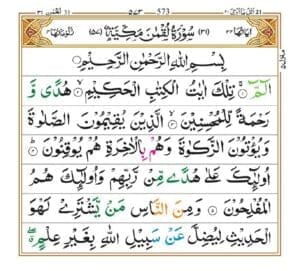 لقمٰن ۳۱ ۵۷۳ 573
(۳۱) سُوْرَةُ لُقْمٰنَ مَكِّيَّةٌ (۵۷)
بِسْمِ اللهِ الرَّحْمٰنِ الرَّحِيْمِ
الٓمّٓ ۚ‏ ۱ تِلْكَ اٰيٰتُ الْكِتٰبِ الْحَكِيْمِ ۙ‏ ۲ هُدًى وَّ
رَحْمَةً لِّلْمُحْسِنِيْنَ ۙ‏ ۳ الَّذِيْنَ يُقِيْمُوْنَ الصَّلٰوةَ
وَيُؤْتُوْنَ الزَّكٰوةَ وَهُمْ بِالْاٰخِرَةِ هُمْ يُوْقِنُوْنَ ؕ‏ ۴
اُولٰٓئِكَ عَلٰى هُدًى مِّنْ رَّبِّهِمْ وَاُولٰٓئِكَ هُمُ
الْمُفْلِحُوْنَ ۵ وَمِنَ النَّاسِ مَنْ يَّشْتَرِيْ لَهْوَ
الْحَدِيْثِ لِيُضِلَّ عَنْ سَبِيْلِ اللهِ بِغَيْرِ عِلْمٍ